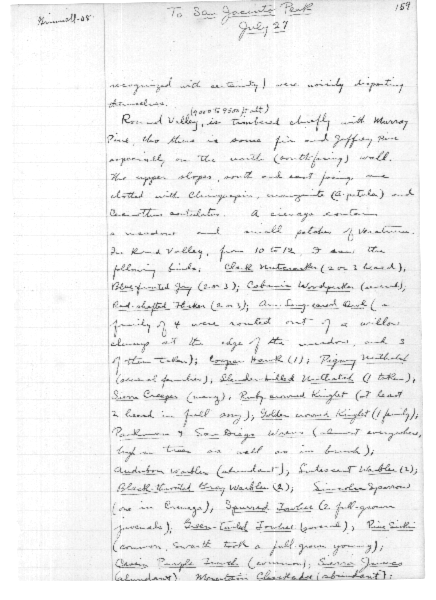 Grinnell-'08.
To San Jacinto Peak
159
July 27
recognized with certainty) were noisily disporting
themselves.
(9000 to 9500 ft. alt.)
Round Valley, is timbered chiefly with Murray
Pine, tho there is some fir and Jeffrey Pine
especially on the north (south-facing) wall.
The upper slopes, north and east facing, are
clothed with Chinquapin, manzanita and
Ceanothus cordulatus. A cienaga contains
a meadow and small patches of Veratrum.
In Round Valley, from 10 to 12, I saw the
following birds: Clark Nutcracker (2 or 3 heard),
Blue-fronted Jay (2 or 3); Cabanis Woodpecker (several),
Red-shafted Flicker (2 or 3); Am. Long-eared Owl (a
family of 4 were routed out of a willow
clump at the edge of the meadow, and 3
of them taken); Cooper Hawk (1); Pigmy Nuthatch
(several families), Slender-billed Nuthatch (1 taken),
Sierra Creeper (many), Ruby-crowned Kinglet (at least
2 heard in full song); Golden-crowned Kinglet (1 family);
Parkman & San Diego Wrens (almost everywhere,
high in trees as well as in brush);
Audubon Warbler (abundant); Lutescent Warbler (2);
Black-throated Gray Warbler (2); Lincoln Sparrow
(one in Cienaga), Spurred Towhee (2 full-grown
juvenals); Green-tailed Towhee (several); Pine Siskin
(common, Swarth took a full-grown young);
Cassin Purple Finch (common); Sierra Junco
(abundant). Mountain Chickadee (abundant);